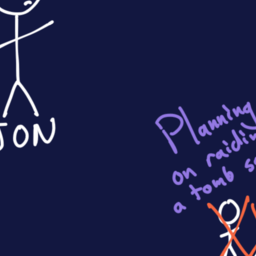 JON
Planning
on raiding
a tomb so